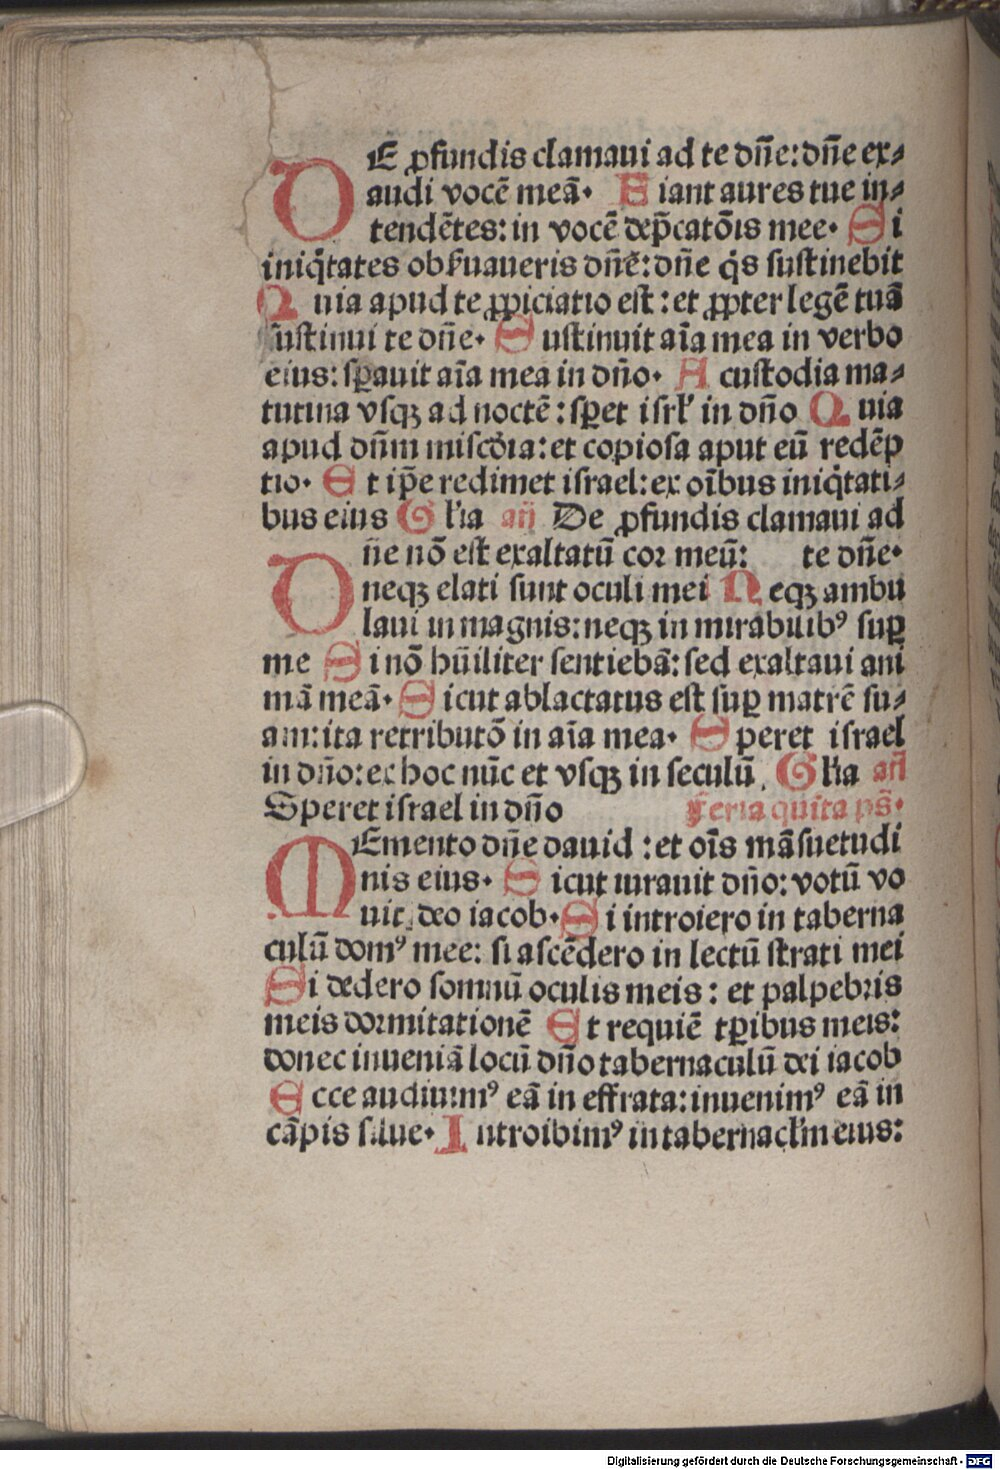 DE ꝓfundis clamaui ad te dn̄e: dn̄e ex⸗
audi vocē meā. Fiant aures tue in⸗
tendētes: in vocē dep̄catōis mee. Si
iniq̇tates obẜuaueris dn̄e: dn̄e q̇s ſuſtinebit
Quia apud te ꝓpiciatio eſt: et ꝓpter legē tuā
ſuſtinui te dn̄e. Suſtinuit aīa mea in verbo
eius: ſꝑauit aīa mea in dn̄o. A cuſtodia ma⸗
tutina vſqꝫ ad noctē: ſꝑet iſrl' in dn̄o Quia
apud dn̄m miſcōia: et copioſa aput eū redēp
tio. Et ip̄e redimet iſrael: ex oībus iniq̇tati⸗
bus eius Gl'ia an̄ De ꝓfundis clamaui ad
te dn̄e.
Dn̄e nō eſt exaltatū cor meū:
neqꝫ elati ſunt oculi mei Neqꝫ ambu
laui in magnis: neqꝫ in mirabilibꝰ ſuꝑ
me Si nō hūiliter ſentiebā: ſed exaltaui ani
mā meā. Sicut ablactatus eſt ſuꝑ matrē ſu⸗
am: ita retributō in aīa mea. Speret iſrael
in dn̄o: ex hoc nūc et vſqꝫ in ſeculū. Gl'ia an̄
Speret iſrael in dn̄o Feria quīta pš.
MEmento dn̄e dauid: et oīs māſuetudi
nis eius. Sicut iurauit dn̄o: votū vo
uit deo iacob. Si introiero in taberna
culū domꝰ mee: ſi aſcēdero in lectū ſtrati mei
Si dedero ſomnū oculis meis: et palpebris
meis dormitationē Et requiē tꝑibus meis:
donec inueniā locū dn̄o tabernaculū dei iacob
Ecce audiuimꝰ eā in effrata: inuenimꝰ eā in
cāpis ſilue. Introibimꝰ in tabernacl'm eius:
Digitalisierung gefördert durch die Deutsche Forschungsgemeinschaft - DFG